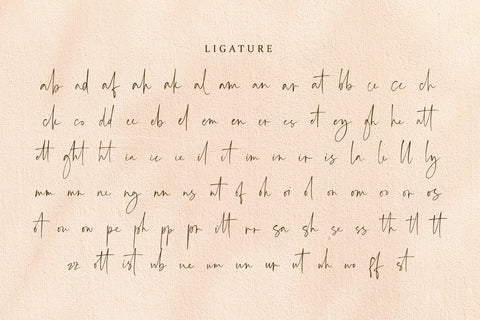 LIGATURE
ab ad af ah ak al am an ar at bb cc ce ch
ck co dd ee eb el em en er es et ey gh he att
ett ght ht ia ic ie il it im in ir is la le ll ly
mm mn ne ng nn ns nt of oh oi ol on om oo or os
ot ou ow pe ph pp pr itt rr sa sh se ss th tl tt
zz ott ist ub ue um un ur ut wh wo ff st